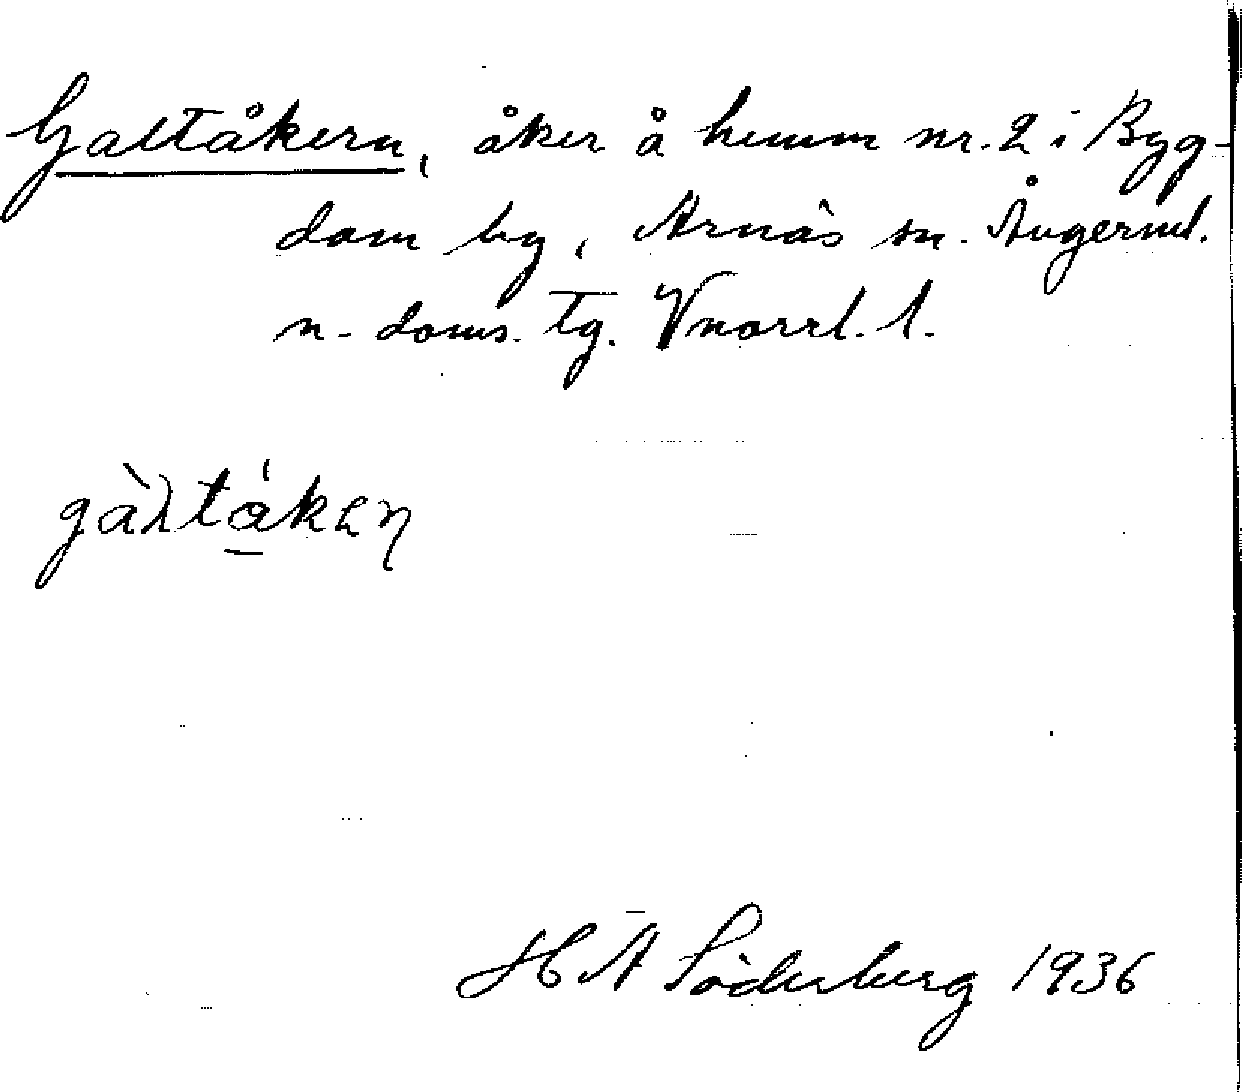 Galtåkern, åker å hemm nr. 2 i Byg-
dom by, Arnäs sn. Ångerml.
n. doms. tg. Vnorrl. l.
gàltåkən
H A Söderberg 1936